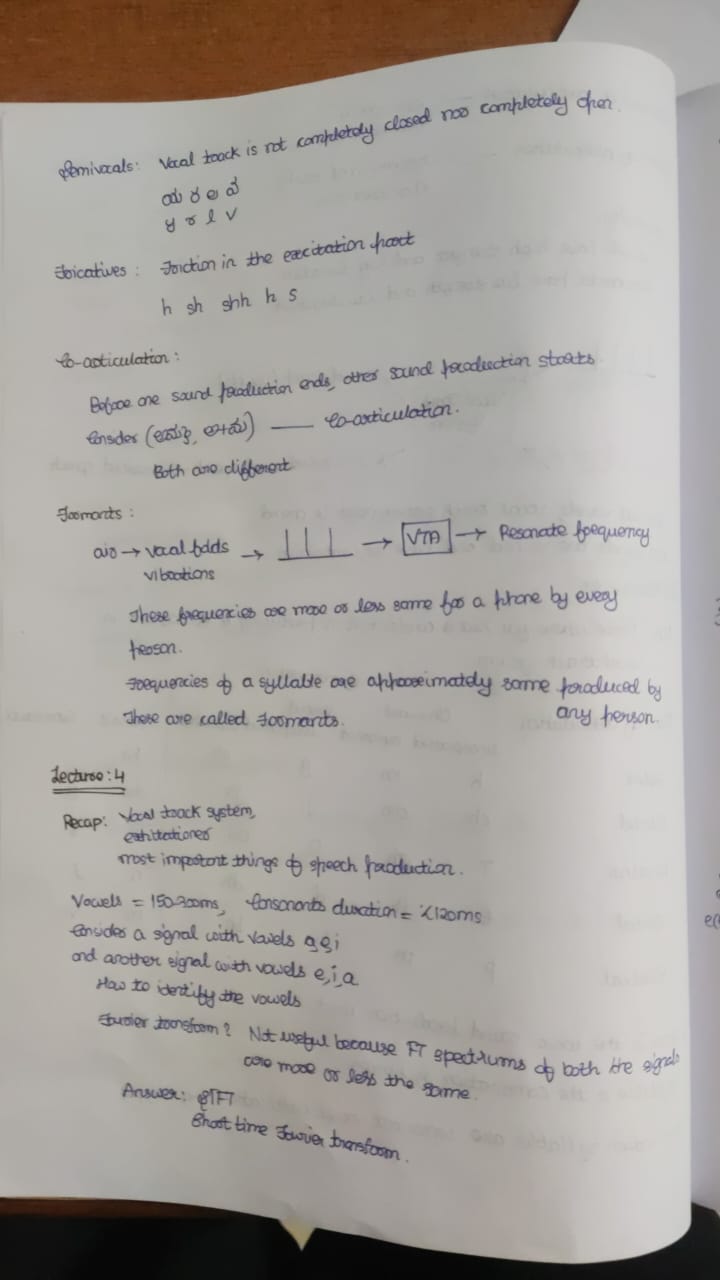 Semivocals: Vocal track is not completely closed nor completely open.
ಯ ರ ಲ ವ
y r l v
Fricatives: Friction in the excitation part
h sh shh h s
Co-articulation:
Before one sound production ends, other sound production starts
Consider ( ) — Co-articulation.
Both are different
Formants:
air → vocal folds vibrations → → VTA → Resonate frequency
These frequencies are more or less same for a phone by every
person.
Frequencies of a syllable are approximately same produced by
any person.
These are called Formants.
Lecture: 4
Recap: Vocal track system,
most important things of speech production.
Vowels = 150-200ms, Consonants duration = <120ms
Consider a signal with vowels a,e,i
and another signal with vowels e,i,a
How to identify the vowels
Fourier transform? Not useful because FT spectrums of both the signals
are more or less the same.
Answer: STFT
Short time Fourier transform.